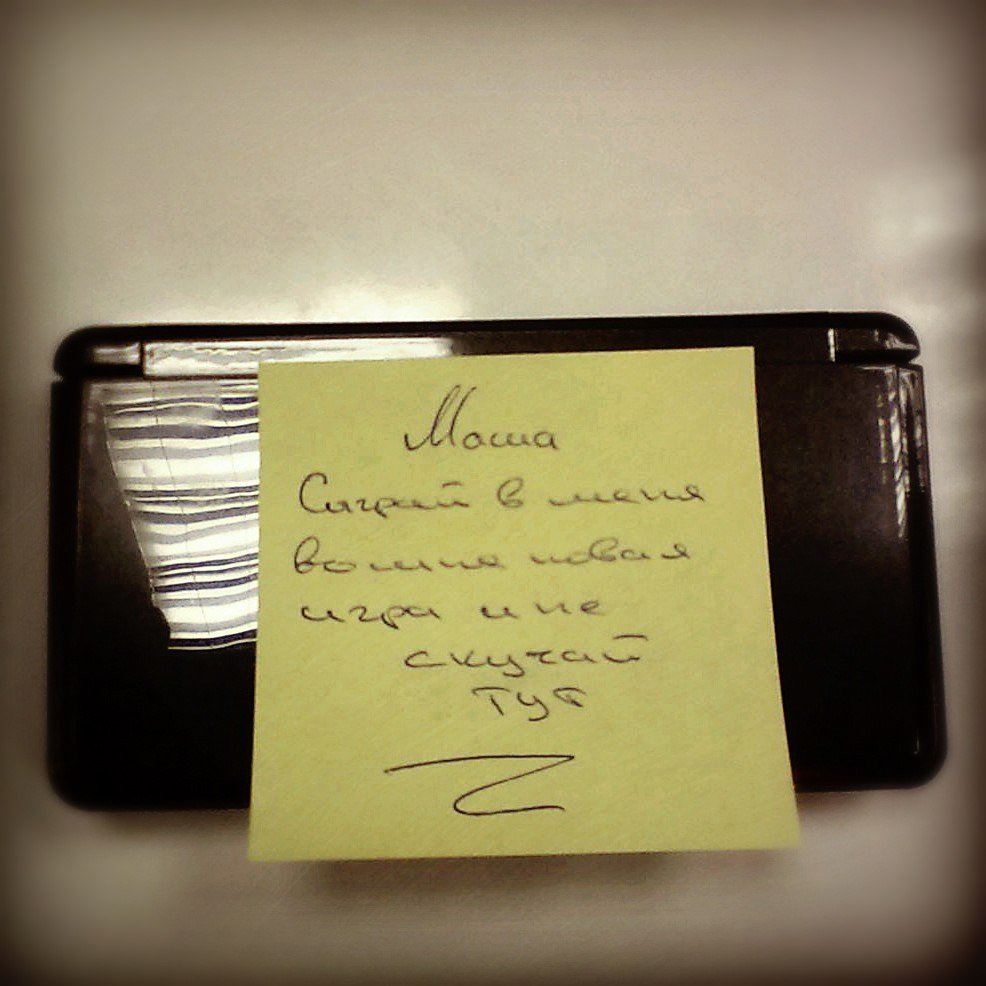 Маша
Сыграй в меня
во мне новая
игра и не
скучай
тут